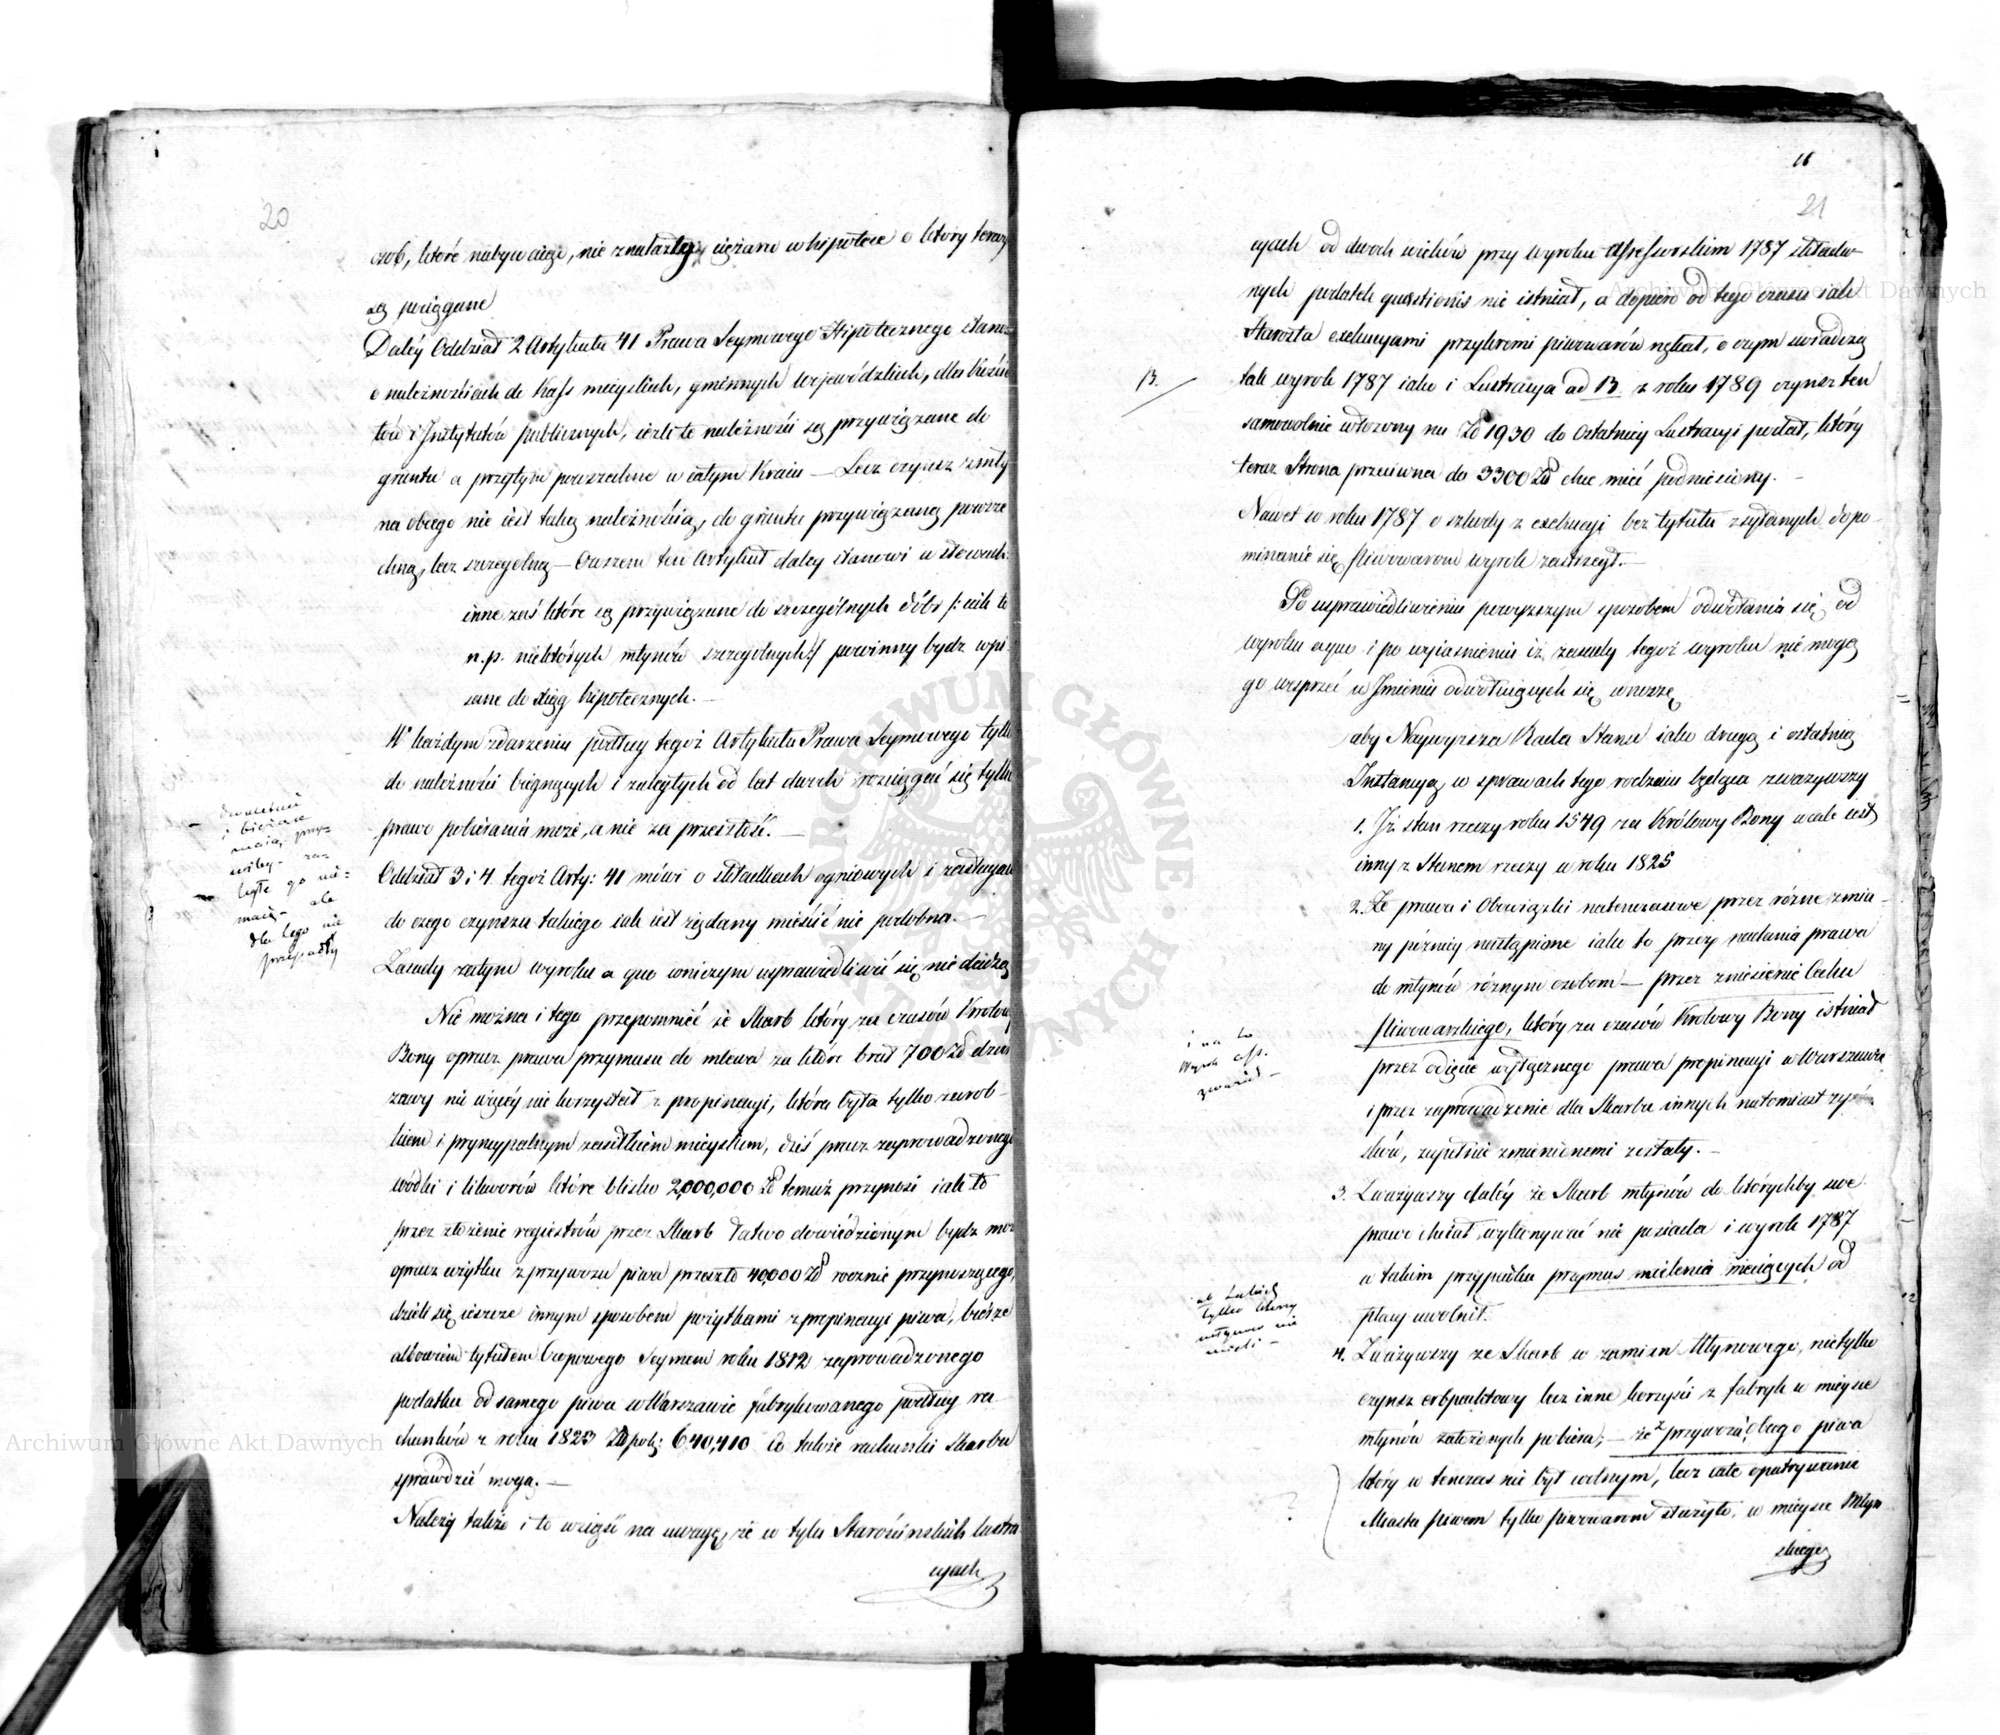 20
osób, które nabywaiąc, nie znalazły ciężaru w hipotece o który teraz
są pociągane
Daléy Oddział 2 Artykułu 41 Prawa Seymowego Hipotecznego stanowi
o należnościach do Kass mieyskich, gminnych woiewódzkich, dla Kościo
łów i Instytutów publicznych, ieżeli te należności są przywiązane do
gruntu a przytym powszechne w całym Kraiu — Lecz czynsz z młyna
na obcego nie iest taką należnością, do gruntu przywiązaną powsze
chną, lecz szczególną — Owszem ten Artykuł daley stanowi w słowach:
inne zaś które są przywiązane do szczególnych dóbr /: iak to
n.p. niektórych młynów szczególnych :/ powinny bydz wpi-
sane do xiąg hipotecznych. —
W każdym zdarzeniu podług tegoż Artykułu Prawa Seymowego tylko
do należności bieżących i zaległych od lat dwóch rozciągać się tylko
prawo pobierania może, a nie za przeszłość. —
Oddział 3 i 4 tegoż Arty: 41 mówi o składkach ogniowych i zasługach
do czego czynszu takiego iak iest żądany mieścić nie podobna. —
Zasady zatym wyroku a quo wniczym usprawiedliwić się nie dadzą
Nie można i tego przepomnieć że Skarb który za czasów Krolowy
Bony oprucz prawa przymusu do mlewa za które brał 700 Zł dzier
żawy nic więcéy nie korzystał z propinacyi, która była tylko zarob-
kiem i pryncypalnym zasiłkiem mieyskim, dziś prucz zaprowadzonego
wódki i likworów które blisko 2,000,000 Zł temuż przynosi iak to
przez złożenie regiestrów przez Skarb łatwo dowiedzionym bydz moż
oprucz użytku z przywozu piwa przeszło 40,000 Zł rocznie przynoszącego,
dzieli się ieszcze innym sposobem pożytkami z propinacyi piwa, bierze
albowiem tytułem Czopowego Seymem roku 1812 zaprowadzonego
podatku od samego piwa w Warszawie fabrykowanego podług ra-
chunków z roku 1823 Zł pol: 640,410 co także rachunki Skarbu
sprawdzić mogą. —
Należy także i to wziąść na uwagę, że w tylu Starościńskich lustra
cyach
dwuletnie
i bieżące
maią przy-
wiley - zaś
ległe go nie=
maią - ale
dla tego nie
przepadły
11
21
cyach od dwóch wieków przy wyroku Assessorskim 1787 składa-
nych podatek questionis nie istniał, a dopiero od tego czasu iak
Starosta exekucyami przykremi piwowarów nękał, o czym swiadczą
B.
tak wyrok 1787 iako i Lustracya ad B z roku 1789 czynsz ten
samowolnie włożony na Zł 1930 do Ostatniey Lustracyi podał, który
teraz Strona przeciwna do 3300 Zł chce mieć podniesiony. —
Nawet w roku 1787 o szkody z exekucyi bez tytułu zsyłanych dopo-
minanie się Piwowarom wyrok zastrzegł. —
Po usprawiedliwieniu powyższym sposobem odwołania się od
wyroku a quo i po wyiaśnieniu iż zasady tegoż wyroku nie mogą
go wesprzeć w Imieniu odwołuiących się wnoszę
aby Naywyższa Rada Stanu iako drugą i ostatnią
Instancyą w sprawach tego rodzaiu będąca zważywszy
1. Iż stan rzeczy roku 1549 za Królowy Bony wcale iest
inny z Stanem rzeczy w roku 1825
2. Że prawa i Obowiązki natenczasowe przez różne zmia-
ny późniey nastąpione iako to przez nadania prawa
do młynów różnym osobom — przez zniesienie Cechu
Piwowarskiego, który za czasów Krolowy Bony istniał
przez odięcie wyłącznego prawa propinacyi w Warszawie
i przez zaprowadzenie dla Skarbu innych natomiast zys-
ków, zupełnie zmienionemi zostały. —
i na to
Wyrok Ass.
zważał —
3. Zważywszy daléy że Skarb młynów do którychby swe
prawo chciał wykonywać nie posiada i wyrok 1787
w takim przypadku przymus mielenia maiących od
płacy uwolnił.
tylko którzy
4. Zważywszy że Skarb w zamian Młynowego, nietylko
czynsz emphiteutyczny lecz inne korzyści z fabryk w mieysce
młynów założonych pobiera; — że z przywozu obcego piwa
który w tenczas nie był wolnym, lecz całe opatrywanie
Miasta piwem tylko piwowarom służyło, w mieysce Młyn
skiego
?
Archiwum Główne Akt Dawnych